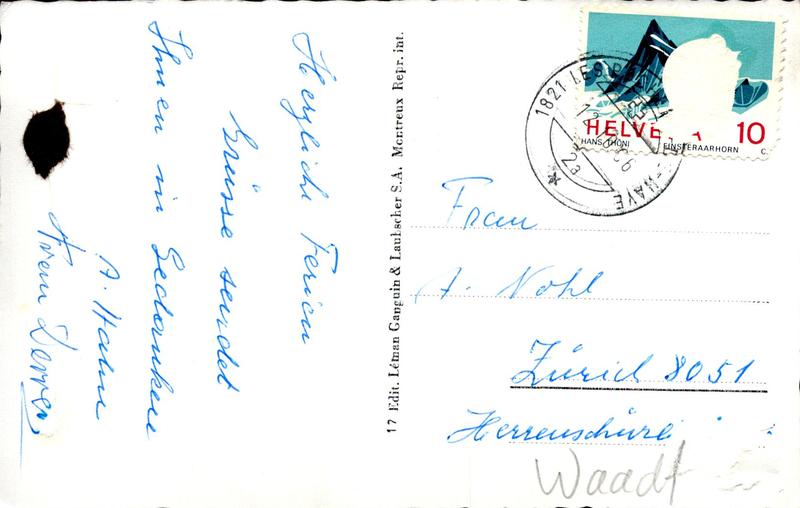 Herzliche Ferien
Grüsse sendet
Ihnen in Gedanken
A. Hahn
17 Edit. Léman Ganguin & Laubscher S.A. Montreux Repr. int.
HELVETIA 10
HANS THÖNI FINSTERAARHORN
C
1821 LES
-NAYE
Frau
A. Nohl
Zürich 8051
Herrenschürli
Waadt